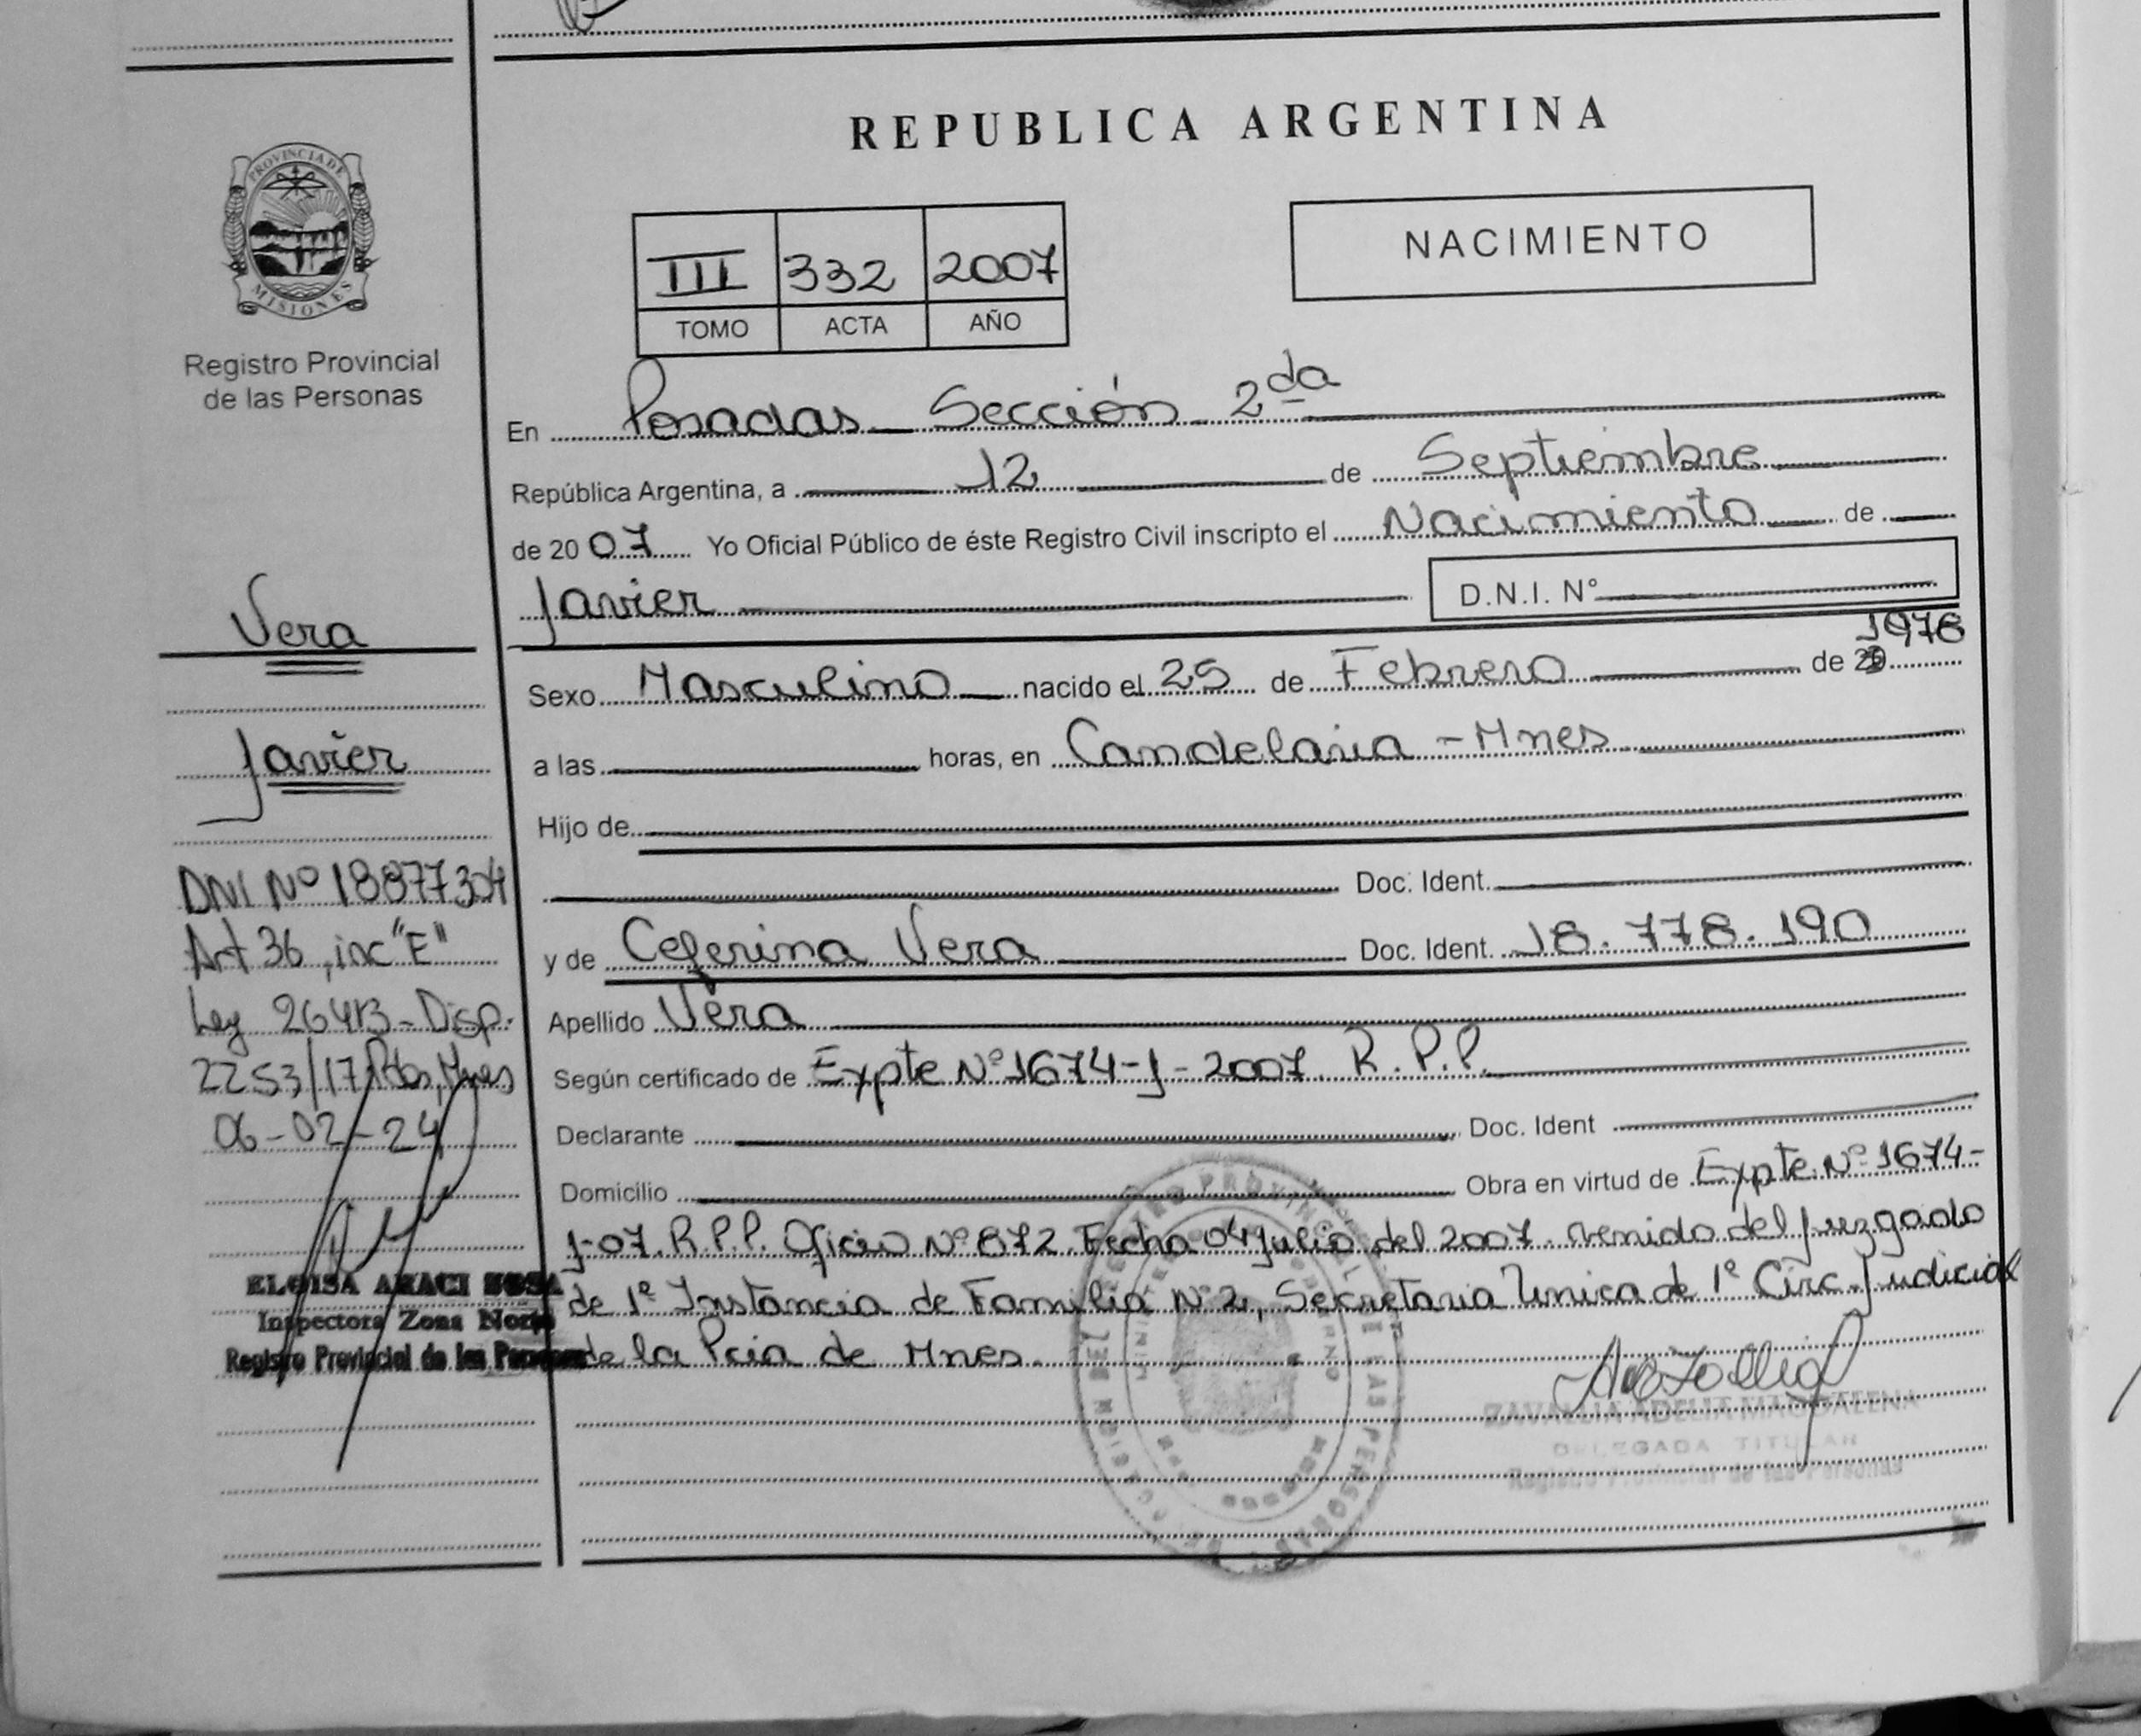 REPUBLICA ARGENTINA
PROVINCIA DE
MISIONES
Registro Provincial
de las Personas
III 332 2007
TOMO ACTA AÑO
NACIMIENTO
En Posadas Sección 2da
República Argentina, a 12 de Septiembre
de 20 07 Yo Oficial Público de éste Registro Civil inscripto el Nacimiento de
Javier D.N.I. N°
1976
Sexo Masculino nacido el 25 de Febrero de
a las horas, en Candelaria - Mnes
Hijo de
Doc. Ident.
y de Ceferina Vera Doc. Ident. 18.778.190
Apellido Vera
Según certificado de Expte Nº 1674-J-2007. R.P.P.
Declarante Doc. Ident
Domicilio Obra en virtud de Expte. Nº 1674-
J-07. R.P.P. Oficio Nº 872 Fecha 04 Julio del 2007. venido del Juzgado
de 1º Instancia de Familia Nº 2, Secretaria Unica de 1º Circ. Judicial
de la Pcia de Mnes.
ZAVALLIA ADELIA MAGDALENA
DELEGADA TITULAR
Registro Provincial de las Personas
Vera
Javier
DNI Nº 18877304
Art 36, inc "E"
Ley 26413 - Disp.
2253/17 Pdas, Mnes
06-02-24
ELOISA ARACI SOSA
Inspectora Zona Norte
Registro Provincial de las Personas